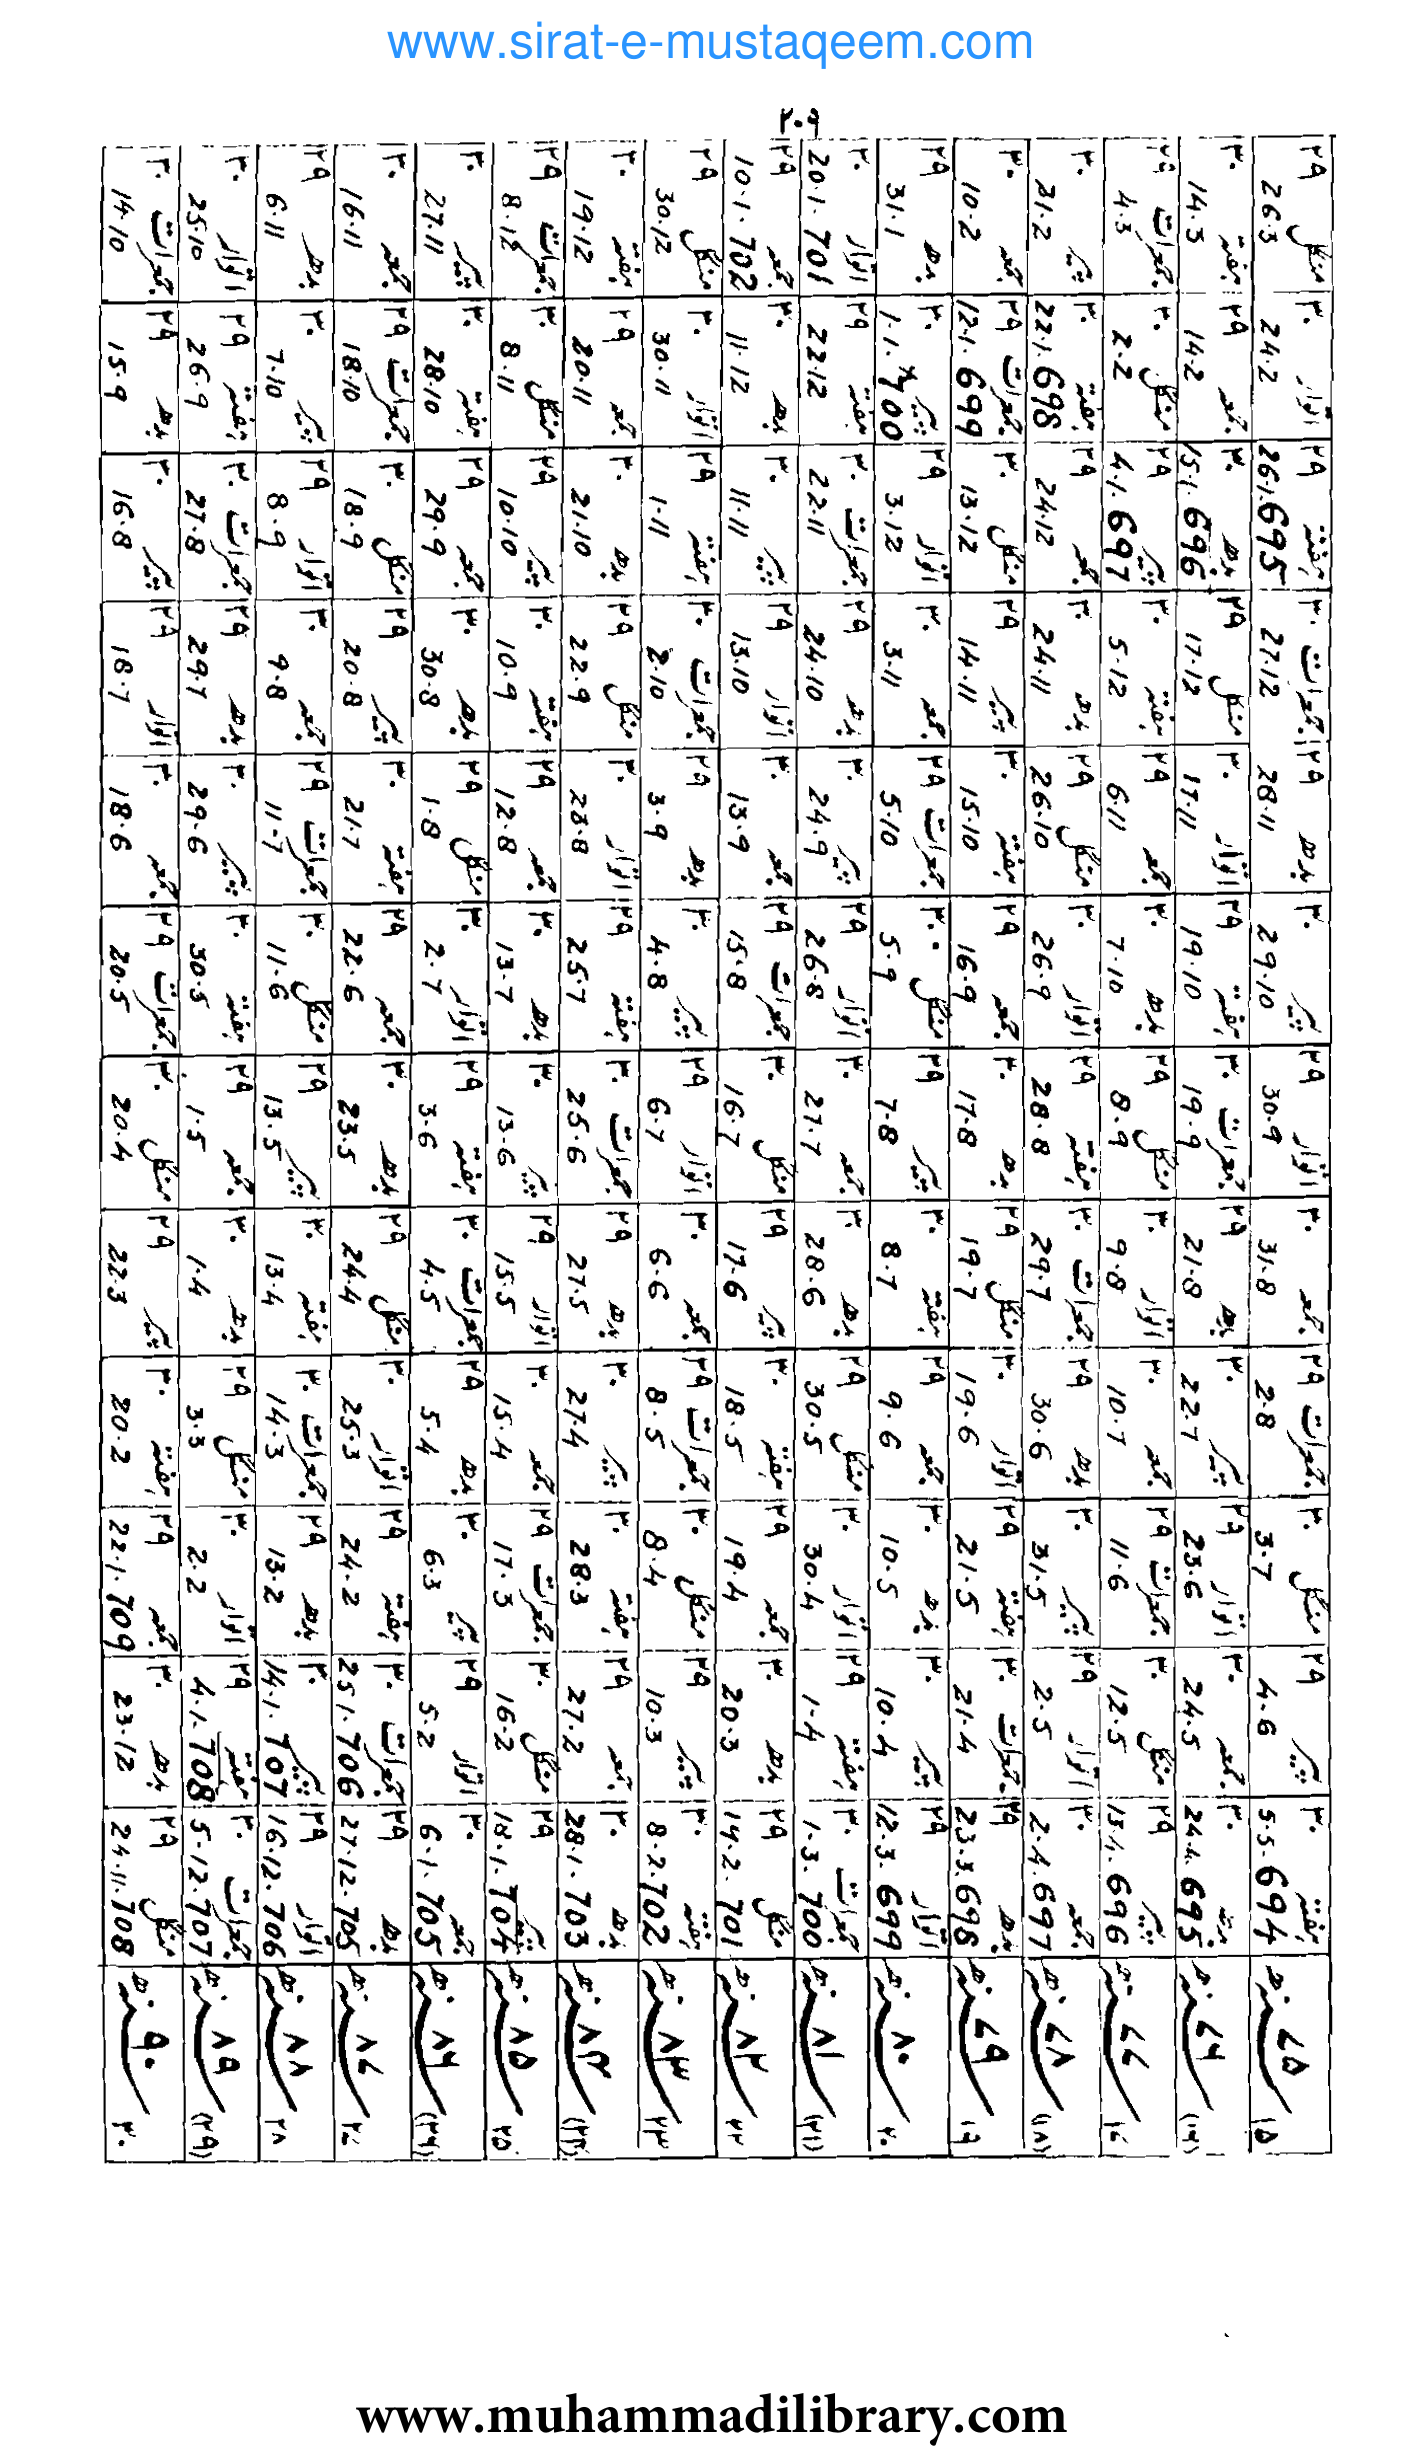 www.sirat-e-mustaqeem.com
۲۰۹
۱۵ ۷۵ سنہ ھ ہفتہ ۳۰ 5.5.694 پیر ۲۹ 4.6 منگل ۳۰ 3.7 جمعرات ۲۹ 2.8 جمعہ ۳۰ 31.8 اتوار ۲۹ 30.9 پیر ۳۰ 29.10 بدھ ۲۹ 28.11 جمعرات ۳۰ 27.12 ہفتہ ۲۹ 26.1.695 اتوار ۳۰ 24.2 منگل ۲۹ 26.3
(۱۶) ۷۶ سنہ ھ ۳۰ 24.4.695 جمعہ ۳۰ 24.5 اتوار ۲۹ 23.6 پیر ۳۰ 22.7 بدھ ۲۹ 21.8 جمعرات ۳۰ 19.9 ہفتہ ۲۹ 19.10 اتوار ۳۰ 17.11 منگل ۲۹ 17.12 بدھ ۳۰ 15.1.696 جمعہ ۲۹ 14.2 ہفتہ ۳۰ 14.3
۱۷ ۷۷ سنہ ھ پیر ۲۹ 13.4.696 منگل ۳۰ 12.5 جمعرات ۲۹ 11.6 جمعہ ۳۰ 10.7 اتوار ۳۰ 9.8 منگل ۲۹ 8.9 بدھ ۳۰ 7.10 جمعہ ۲۹ 6.11 ہفتہ ۳۰ 5.12 پیر ۲۹ 4.1.697 منگل ۳۰ 2.2 جمعرات ۲۹ 4.3
(۱۸) ۷۸ سنہ ھ جمعہ ۳۰ 2.4.697 اتوار ۲۹ 2.5 پیر ۳۰ 31.5 بدھ ۲۹ 30.6 جمعرات ۳۰ 29.7 ہفتہ ۲۹ 28.8 اتوار ۳۰ 26.9 منگل ۲۹ 26.10 بدھ ۳۰ 24.11 جمعہ ۲۹ 24.12 ہفتہ ۳۰ 22.1.698 پیر ۳۰ 21.2
۱۹ ۷۹ سنہ ھ بدھ ۲۹ 23.3.698 جمعرات ۳۰ 21.4 ہفتہ ۲۹ 21.5 اتوار ۳۰ 19.6 منگل ۲۹ 19.7 بدھ ۳۰ 17.8 جمعہ ۲۹ 16.9 ہفتہ ۳۰ 15.10 پیر ۲۹ 14.11 منگل ۳۰ 13.12 جمعرات ۲۹ 12.1.699 جمعہ ۳۰ 10.2
۲۰ ۸۰ سنہ ھ اتوار ۲۹ 12.3.699 پیر ۳۰ 10.4 بدھ ۳۰ 10.5 جمعہ ۲۹ 9.6 ہفتہ ۳۰ 8.7 پیر ۲۹ 7.8 منگل ۳۰ 5.9 جمعرات ۲۹ 5.10 جمعہ ۳۰ 3.11 اتوار ۲۹ 3.12 پیر ۳۰ 1.1.700 بدھ ۲۹ 31.1
(۲۱) ۸۱ سنہ ھ جمعرات ۳۰ 1.3.700 ہفتہ ۲۹ 1.4 اتوار ۳۰ 30.4 منگل ۲۹ 30.5 بدھ ۳۰ 28.6 جمعہ ۳۰ 27.7 اتوار ۲۹ 26.8 پیر ۳۰ 24.9 بدھ ۲۹ 24.10 جمعرات ۳۰ 22.11 ہفتہ ۲۹ 22.12 اتوار ۳۰ 20.1.701
۲۲ ۸۲ سنہ ھ منگل ۲۹ 14.2.701 بدھ ۳۰ 20.3 جمعہ ۲۹ 19.4 ہفتہ ۳۰ 18.5 پیر ۲۹ 17.6 منگل ۳۰ 16.7 جمعرات ۲۹ 15.8 جمعہ ۳۰ 13.9 اتوار ۲۹ 13.10 پیر ۳۰ 11.11 بدھ ۳۰ 11.12 جمعہ ۲۹ 10.1.702
۲۳ ۸۳ سنہ ھ ہفتہ ۳۰ 8.2.702 پیر ۲۹ 10.3 منگل ۳۰ 8.4 جمعرات ۲۹ 8.5 جمعہ ۳۰ 6.6 اتوار ۲۹ 6.7 پیر ۳۰ 4.8 بدھ ۲۹ 3.9 جمعرات ۳۰ 2.10 ہفتہ ۲۹ 1.11 اتوار ۳۰ 30.11 منگل ۲۹ 30.12
(۲۴) ۸۴ سنہ ھ بدھ ۳۰ 28.1.703 جمعہ ۲۹ 27.2 ہفتہ ۳۰ 28.3 پیر ۳۰ 27.4 بدھ ۲۹ 27.5 جمعرات ۳۰ 25.6 ہفتہ ۲۹ 25.7 اتوار ۳۰ 23.8 منگل ۲۹ 22.9 بدھ ۳۰ 21.10 جمعہ ۲۹ 20.11 ہفتہ ۳۰ 19.12
۲۵ ۸۵ سنہ ھ پیر ۲۹ 18.1.704 منگل ۳۰ 16.2 جمعرات ۲۹ 17.3 جمعہ ۳۰ 15.4 اتوار ۲۹ 15.5 پیر ۳۰ 13.6 بدھ ۳۰ 13.7 جمعہ ۲۹ 12.8 ہفتہ ۳۰ 10.9 پیر ۲۹ 10.10 منگل ۳۰ 8.11 جمعرات ۲۹ 8.12
(۲۶) ۸۶ سنہ ھ جمعہ ۳۰ 6.1.705 اتوار ۲۹ 5.2 پیر ۳۰ 6.3 بدھ ۲۹ 5.4 جمعرات ۳۰ 4.5 ہفتہ ۲۹ 3.6 اتوار ۳۰ 2.7 منگل ۲۹ 1.8 بدھ ۳۰ 30.8 جمعہ ۲۹ 29.9 ہفتہ ۳۰ 28.10 پیر ۳۰ 27.11
۲۷ ۸۷ سنہ ھ بدھ ۲۹ 27.12.705 جمعرات ۳۰ 25.1.706 ہفتہ ۲۹ 24.2 اتوار ۳۰ 25.3 منگل ۲۹ 24.4 بدھ ۳۰ 23.5 جمعہ ۲۹ 22.6 ہفتہ ۳۰ 21.7 پیر ۲۹ 20.8 منگل ۳۰ 18.9 جمعرات ۲۹ 18.10 جمعہ ۳۰ 16.11
۲۸ ۸۸ سنہ ھ اتوار ۲۹ 16.12.706 پیر ۳۰ 14.1.707 بدھ ۲۹ 13.2 جمعرات ۳۰ 14.3 ہفتہ ۳۰ 13.4 پیر ۲۹ 13.5 منگل ۳۰ 11.6 جمعرات ۲۹ 11.7 جمعہ ۳۰ 9.8 اتوار ۲۹ 8.9 پیر ۳۰ 7.10 بدھ ۲۹ 6.11
(۲۹) ۸۹ سنہ ھ جمعرات ۳۰ 5.12.707 ہفتہ ۲۹ 4.1.708 اتوار ۳۰ 2.2 منگل ۲۹ 3.3 بدھ ۳۰ 1.4 جمعہ ۲۹ 1.5 ہفتہ ۳۰ 30.5 پیر ۳۰ 29.6 بدھ ۲۹ 29.7 جمعرات ۳۰ 27.8 ہفتہ ۲۹ 26.9 اتوار ۳۰ 25.10
۳۰ ۹۰ سنہ ھ منگل ۲۹ 24.11.708 بدھ ۳۰ 23.12 جمعہ ۲۹ 22.1.709 ہفتہ ۳۰ 20.2 پیر ۲۹ 22.3 منگل ۳۰ 20.4 جمعرات ۲۹ 20.5 جمعہ ۳۰ 18.6 اتوار ۲۹ 18.7 پیر ۳۰ 16.8 بدھ ۲۹ 15.9 جمعرات ۳۰ 14.10
www.muhammadilibrary.com